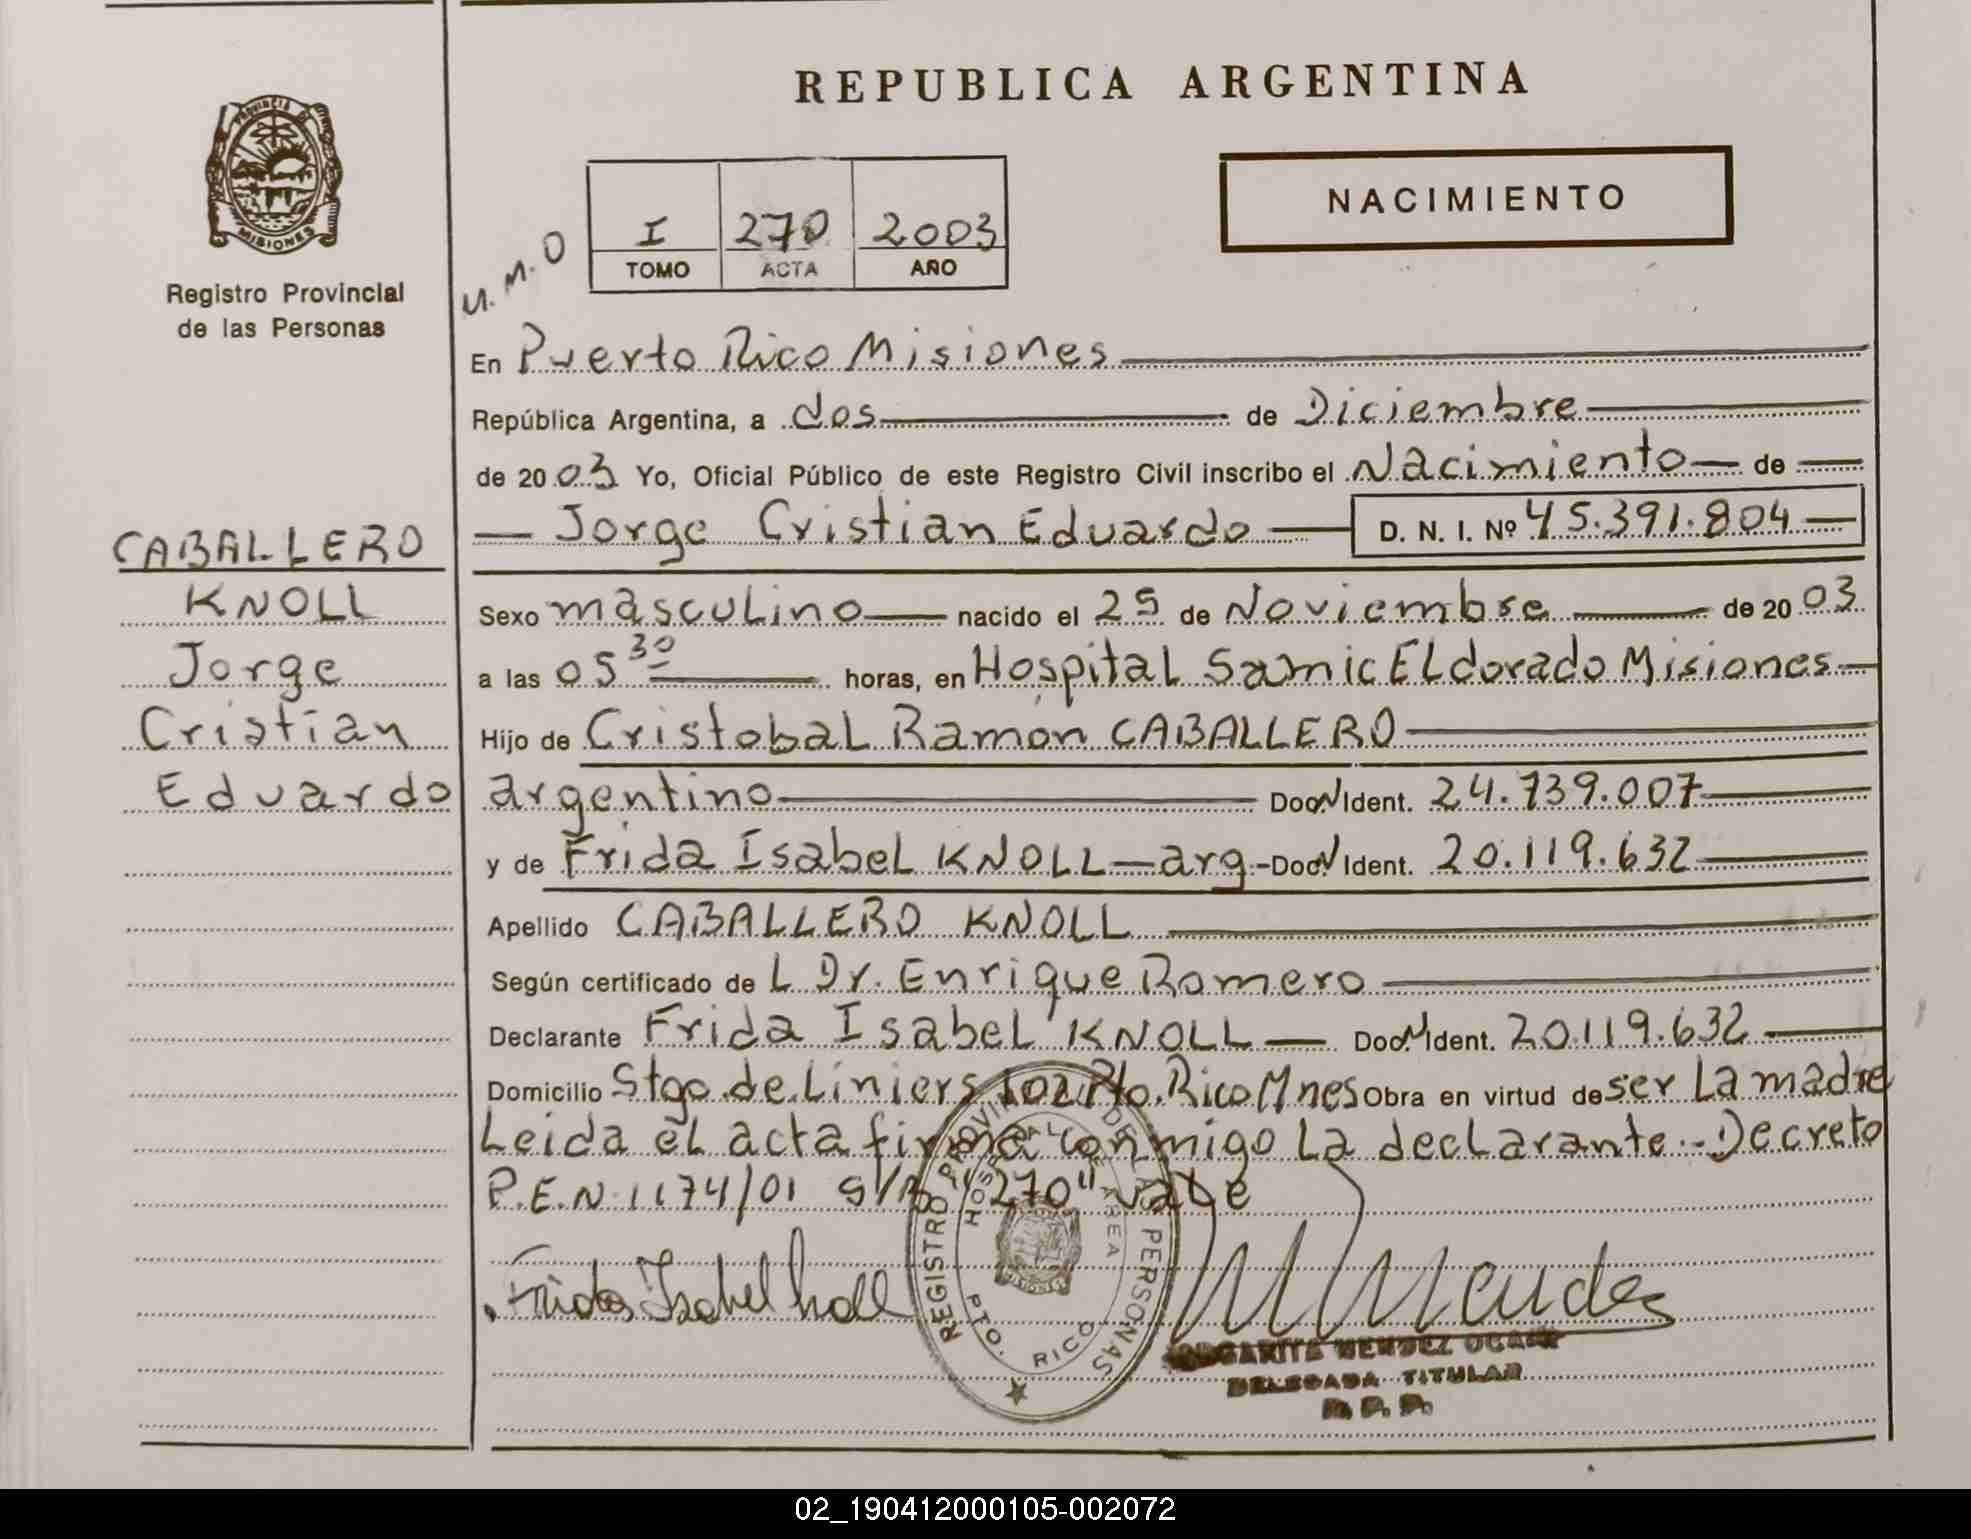 REPUBLICA ARGENTINA
PROVINCIA DE
MISIONES
Registro Provincial
de las Personas
NACIMIENTO
I 270 2003
TOMO ACTA AÑO
U.M.O
En Puerto Rico Misiones
República Argentina, a dos de Diciembre
de 2003 Yo, Oficial Público de este Registro Civil inscribo el Nacimiento de
Jorge Cristian Eduardo D. N. I. Nº 45.391.804
CABALLERO
KNOLL
Jorge
Cristian
Eduardo
Sexo masculino nacido el 25 de Noviembre de 2003
a las 05 30 horas, en Hospital Samic ELdorado Misiones
Hijo de CristobaL Ramón CABALLERO
argentino Doc. N Ident. 24.739.007
y de Frida IsabeL KNOLL-arg-Doc. N Ident. 20.119.632
Apellido CABALLERO KNOLL
Según certificado de L Dr. Enrique Romero
Declarante Frida IsabeL KNOLL Doc. N Ident. 20.119.632
Domicilio Stgo. de Liniers 102 Pto. Rico Mnes Obra en virtud de ser La madre
Leida eL acta firma conmigo La declarante.- Decreto
P.E.N. 1174/01 S/R "270" vale
Frida Isabel Knoll
REGISTRO PROVINCIAL DE LAS PERSONAS
HOSPITAL DE AREA
MISIONES
PTO. RICO
MMendez
MARGARITA MENDEZ
DELEGADA TITULAR
R. P. P.
02_190412000105-002072